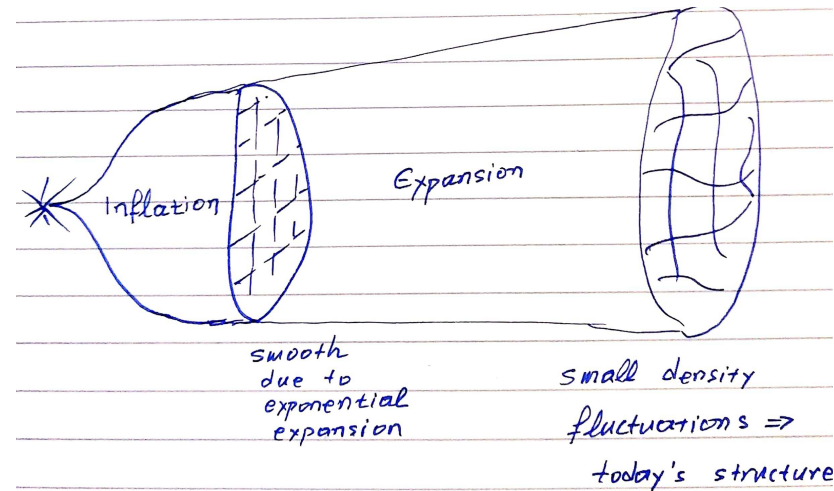 Inflation
Expansion
smooth
due to
exponential
expansion
small density
fluctuations ⇒
today's structure